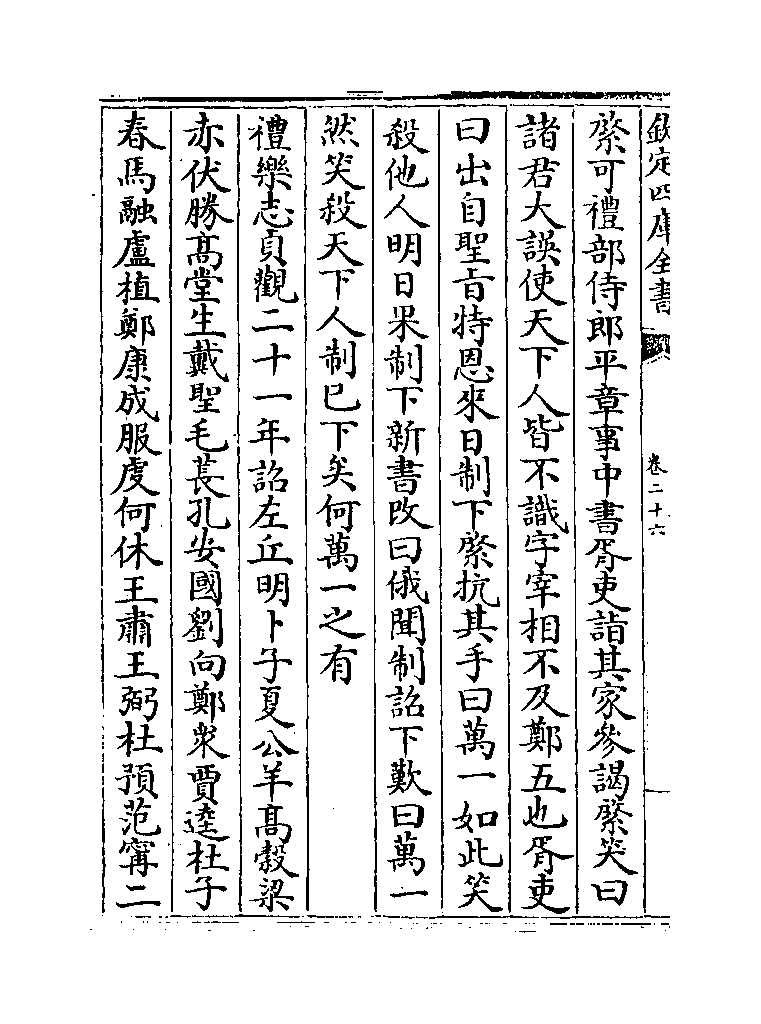 欽定四庫全書
卷二十六
綮可禮部侍郎平章事中書胥吏詣其家參謁綮笑曰
諸君大誤使天下人皆不識字宰相不及鄭五也胥吏
曰出自聖㫖特恩來日制下綮抗其手曰萬一如此笑
殺他人明日果制下新書改曰俄聞制詔下歎曰萬一
然笑殺天下人制已下矣何萬一之有
禮樂志貞觀二十一年詔左丘明卜子夏公羊髙榖梁
赤伏勝髙堂生戴聖毛萇孔安國劉向鄭衆賈逵杜子
春馬融盧植鄭康成服虔何休王肅王弼杜預范甯二